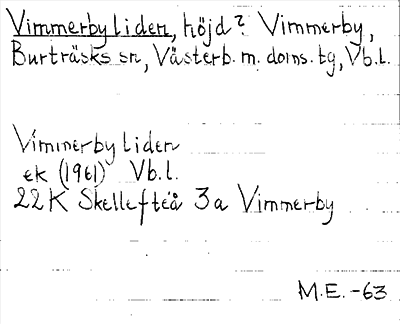 Vimmerbyliden, höjd? Vimmerby,
Burträsks sn, Västerb. m. doms. tg, Vb.l.
Vimmerbyliden
ek (1961) Vb.l.
22K Skellefteå 3a Vimmerby
M.E. -63